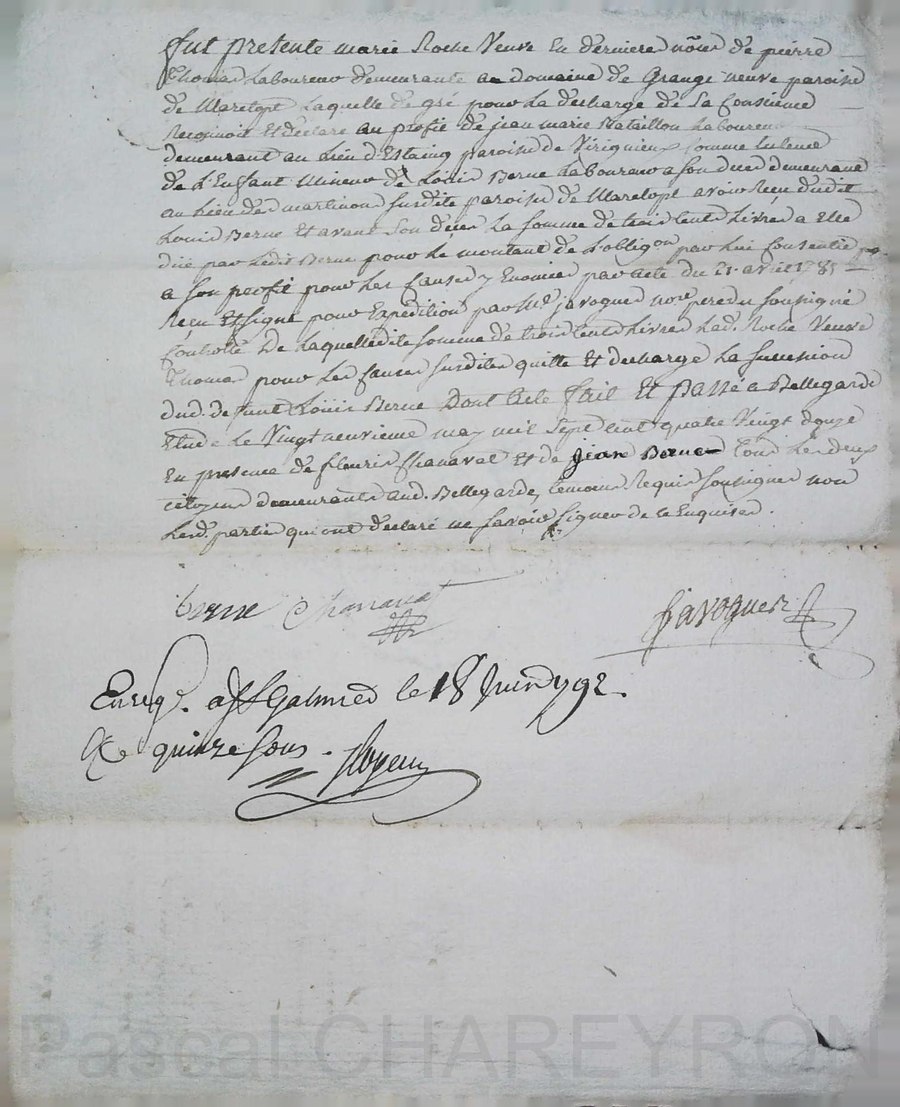 fut presente marie Roche Veuve En derniere nôces de pierre
Thomas Laboureur demeurante au domaine de Grange neuve paroisse
de Marclopt Laquelle de gré pour La decharge de Sa Consience
Reconnoit Et declare au profit de jean marie Bataillon Laboureur
demeurant au Lieu d'Estaing paroisse de Virigneux Comme tuteur
de L'Enfant Mineur de Loüis Berne Laboureur a Son deces demeurant
au Lieu de martinon Susdite paroisse de Marclopt avoir Reçu dudit
Loüis Berne Et avant Son décès La Somme de trois Cents Livres a Elle
düe par Ledit Berne pour Le montant de L'obligon par Lui Consentie
a Son profit pour Les Causes y Enoncées par acte du 21 avril 1785
Reçu Et Signé pour Expédition par Me javogues nore Soussigné
Controllé De Laquelle dite Somme de trois Cents Livres Lad. Roche Veuve
Thomas pour Les Causes Susdites quitte Et decharge La Succession
dud. defunt Loüis Berne Dont Acte fait Et passé a Bellegarde
Etude Le Vingt neuvieme may mil Sept Cent quatre Vingt douze
En presence de fleurie Chanavat Et de jean Berne tous Les deux
citoyens demeurants aud. Bellegarde, temoins Requis Soussignés non
Lesd. parties qui ont declaré ne Savoir Signer de ce Enquises.
berne Chanavat Javogues
Enregé. a St Galmier le 18 Juin 1792.
Re quinze Sous.
Pascal CHAREYRON